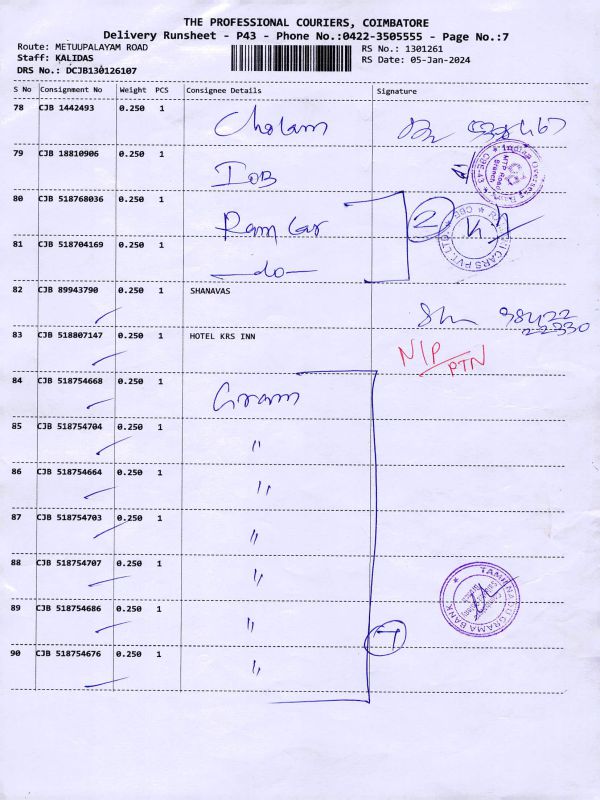 THE PROFESSIONAL COURIERS, COIMBATORE
Delivery Runsheet - P43 - Phone No.:0422-3505555 - Page No.:7
Route: METUUPALAYAM ROAD
RS No.: 1301261
Staff: KALIDAS
RS Date: 05-Jan-2024
DRS No.: DCJB130126107
S No Consignment No Weight PCS Consignee Details Signature
78 CJB 1442493 0.250 1 Cholam
79 CJB 18810906 0.250 1 IOB
80 CJB 518768036 0.250 1 Ram Car 2
81 CJB 518704169 0.250 1 —do—
82 CJB 89943790 0.250 1 SHANAVAS
98422
22330
83 CJB 518807147 0.250 1 HOTEL KRS INN N/P PTN
84 CJB 518754668 0.250 1 Gram
85 CJB 518754704 0.250 1 "
86 CJB 518754664 0.250 1 "
87 CJB 518754703 0.250 1 "
88 CJB 518754707 0.250 1 "
TAMILNADU GRAMA BANK
89 CJB 518754686 0.250 1 "
7
90 CJB 518754676 0.250 1 "